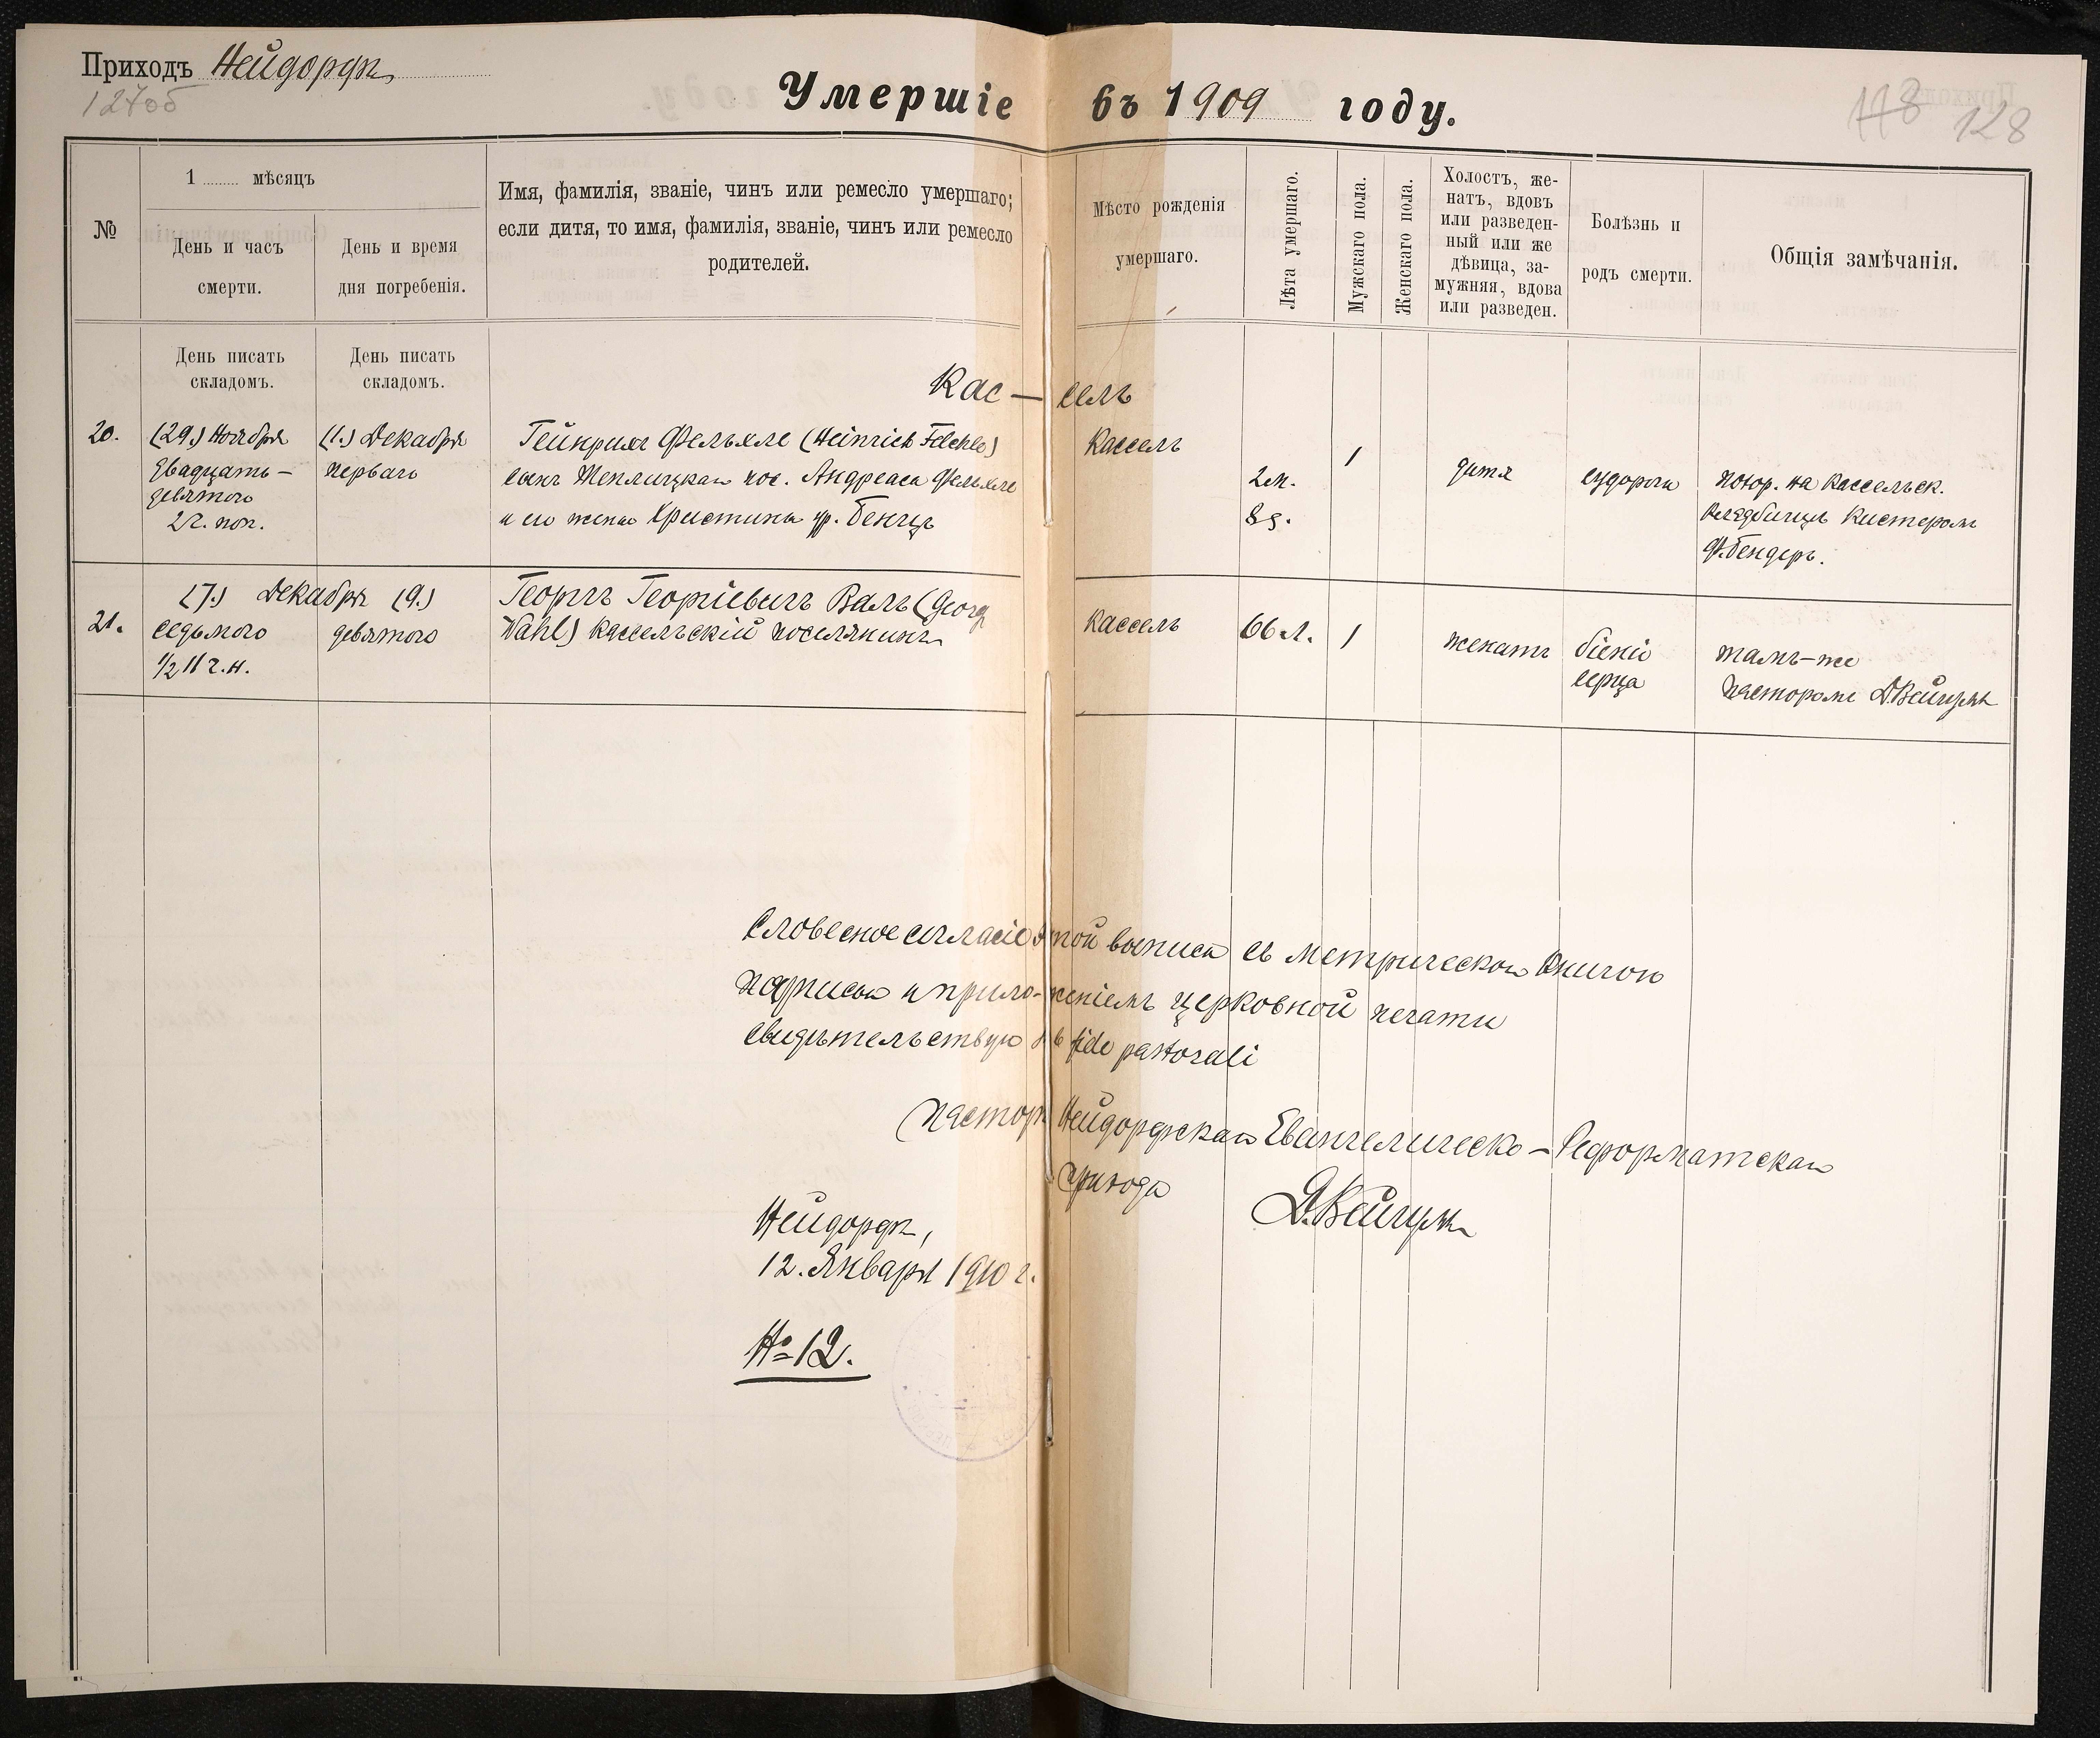 Приходъ Нейдорфъ
127об
Умершіе въ 1909 году.
118 128
№
1 ........ мѣсяцъ
День и часъ
смерти.
День и время
дня погребенія.
Имя, фамилія, званіе, чинъ или ремесло умершаго;
если дитя, то имя, фамилія, званіе, чинъ или ремесло
родителей.
Мѣсто рожденія
умершаго.
Лѣта умершаго.
Мужскаго пола.
Женскаго пола.
Холостъ, же-
натъ, вдовъ
или разведен-
ный или же
дѣвица, за-
мужняя, вдова
или разведен.
Болѣзнь и
родъ смерти.
Общія замѣчанія.
День писать
складомъ.
День писать
складомъ.
Кас – сель
20.
(29.) Ноября
двадцать –
девятого
2 ч. поп.
(1.) Декабря
перваго
Гейнрихъ Фельхле (Heinrich Felchle)
сынъ Теплицкаго пос. Андреаса Фельхле
и его жены Христины ур. Бенцъ
Кассель
2 м.
8 д.
1
дитя
судороги
похор. на Кассельск.
кладбищѣ Кистеромъ
Ф. Бендеръ.
21.
(7.) Декабря (9.)
седьмого
1/2 11 ч. н.
девятого
Георгъ Георгіевичъ Валь (Georg
Wahl) Кассельскій поселянинъ
Кассель
66 л.
1
женатъ
біеніе
серца
тамъ-же
пасторомъ Д. Вейгумъ
Словесное согласіе этой выписи съ метрическою книгою
подписью и приложеніемъ церковной печати
свидѣтельствую sub fide pastorali
Пасторъ Нейдорфскаго Евангелическо – Реформатскаго
прихода
Д. Вейгумъ
Нейдорфъ,
12. Января 1910 г.
№ 12.